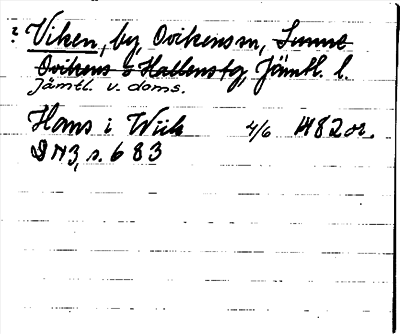 ? Viken, by, Ovikens sn, Sunne
Ovikens o Hallens tg, Jämtl. l.
Jämtl. v. doms.
Hans i Wiik 4/6 1482 or.
DN 3, s. 683